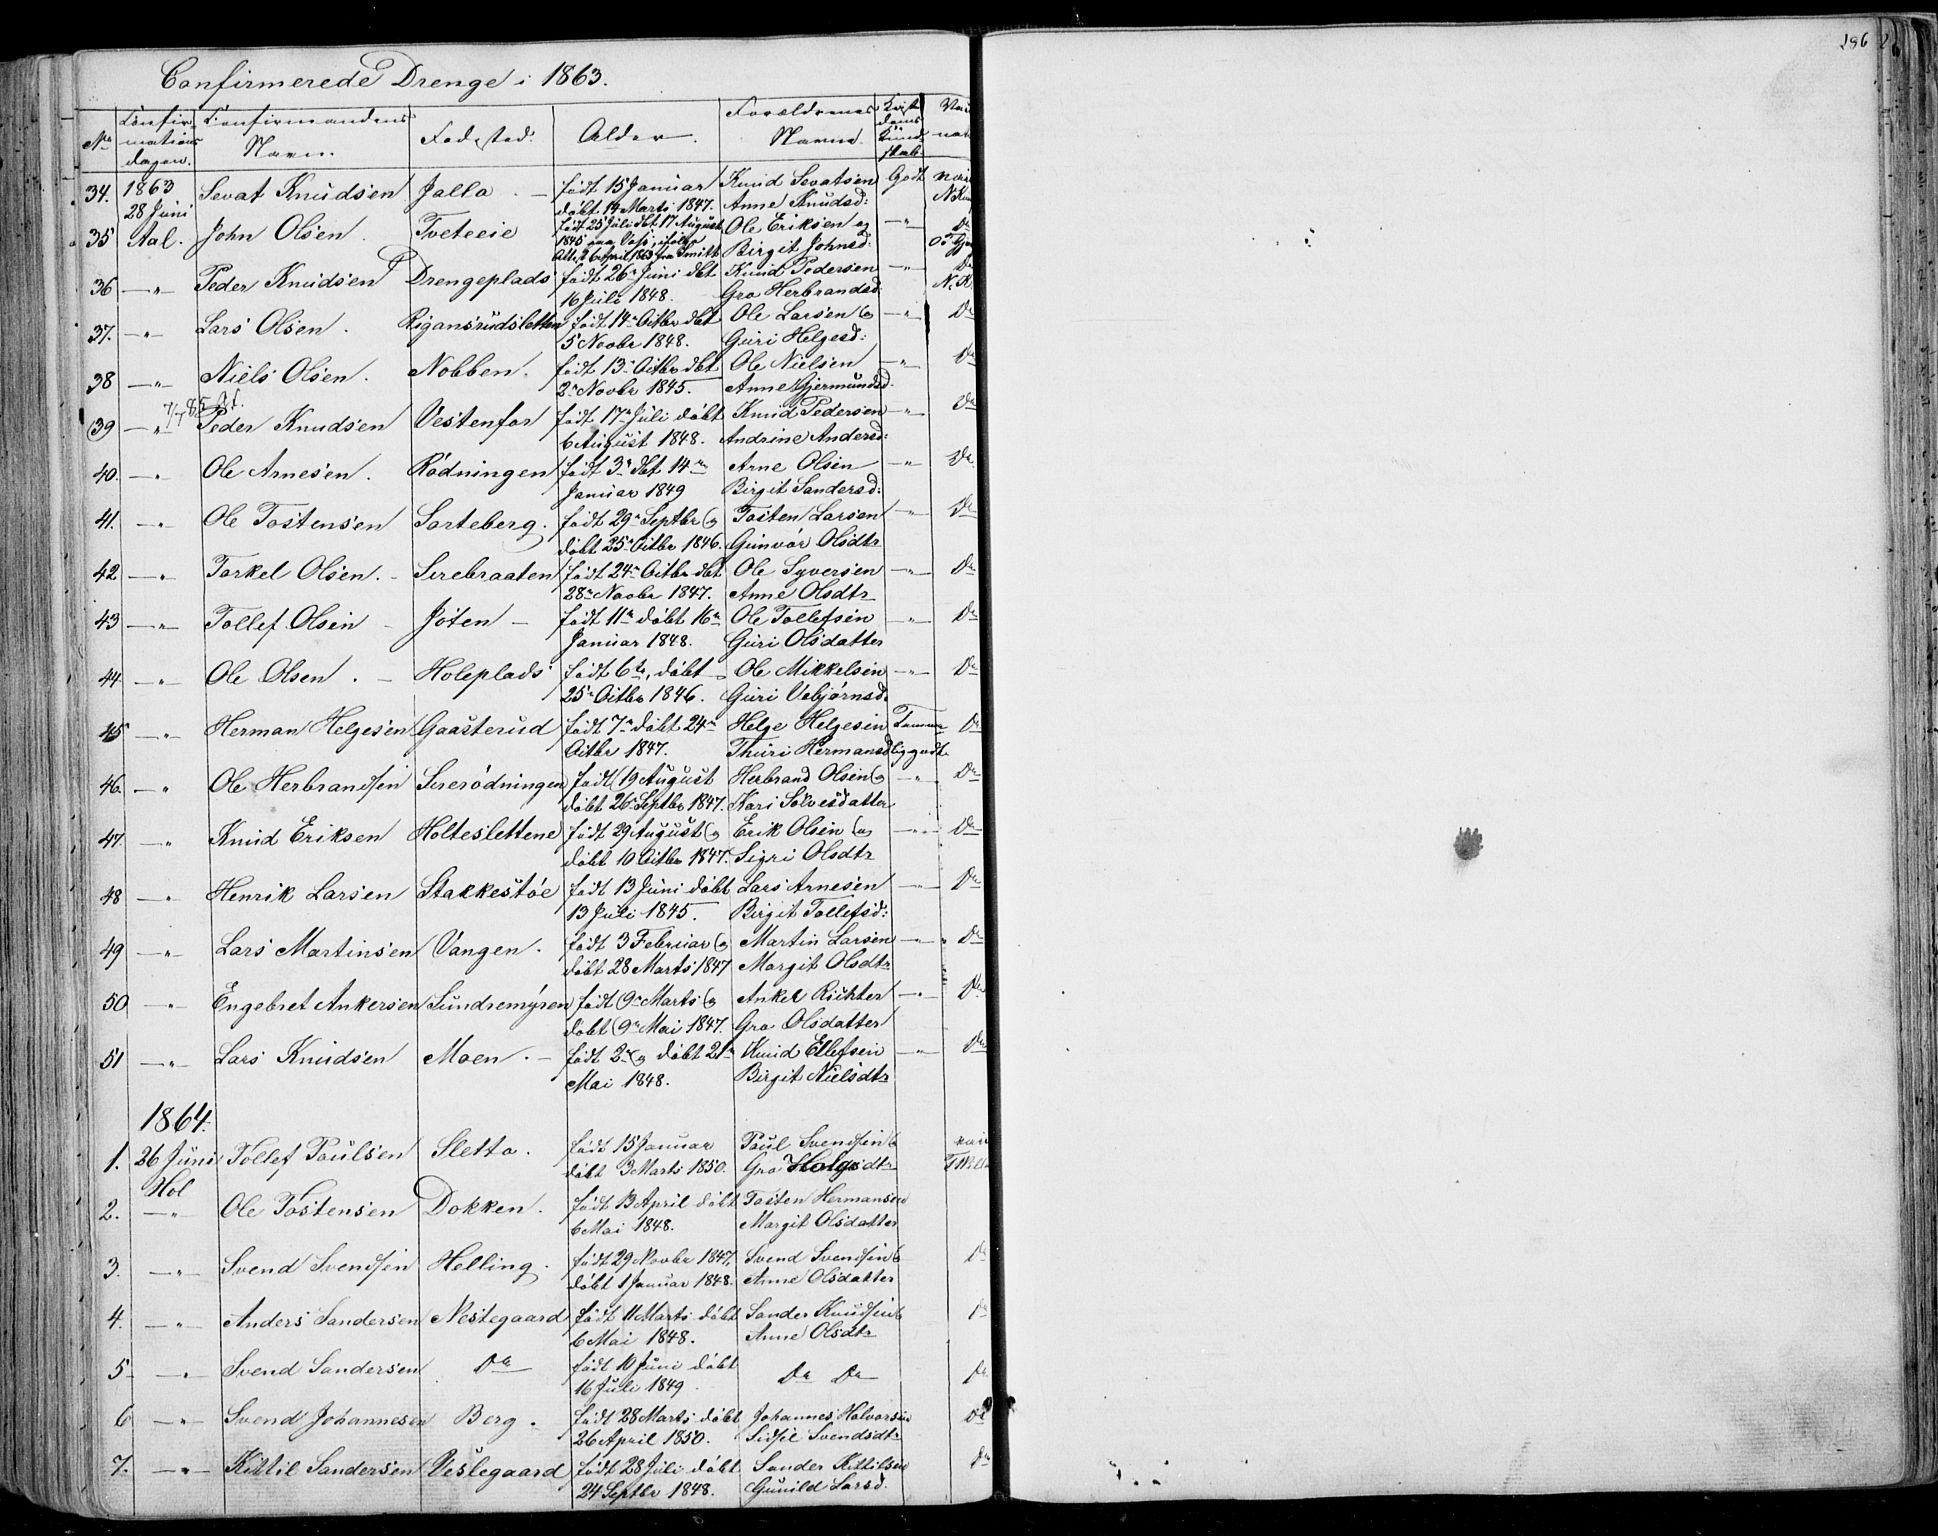 296
Confirmerede Drenge i 1863.
No Confirmations dagen. Confirmandens Navn. Fødested. Alder. Forældrenes Navne. Kristdoms Kundskab.
34. 1863 28 Juni Aal. Sevat Knudsen Jallo født 15 Januar Knud Sevatsen Godt
døbt 14 Marts 1847. Anne Knudsd:
35 John Olsen. Tveteeie født 25 Juli dbt 17 August Ole Eriksen og -"-
1845 paa Voss, ifølge Birgit Johnsd:
Att. 26 April 1863 fra Smitt
36 -"- Peder Knudsen Drengeplads født 26 Juni dbt Knud Pedersen -"- Do
16 Juli 1848. Gro Herbrandsd.
37. -"- Lars Olsen. Rigansrudsletten født 14de Octbr dbt Ole Larsen og -"- Do
5 Novbr 1848. Guri Helgesd:
38 -"- Niels Olsen. Nobben. født 13 Octbr dbt Ole Nielsen -"- Do
2 Novbr 1845. Anne Gjermundsd.
39 -"- Peder Knudsen Vestenfor født 17 Juli døbt Knud Pedersen -"- Do
6 August 1848. Andrine Andersd:
40. -"- Ole Arnesen. Rødningen født 3 dbt 14de Arne Olsen -"- Do
Januar 1849 Birgit Sandersd:
41. -"- Ole Tostensen Sorteberg. født 29 Septbr og Tosten Larsen -"- Do
døbt 25 Octbr 1846. Gunvor Olsdtr
42 -"- Torkel Olsen. Sirebraaten født 24 Octbr dbt Ole Syversen -"- Do
28 Novbr 1847. Anne Olsdtr
43 -"- Tollef Olsen Jøten født 11te døbt 16de Ole Tollefsen -"- Do
Januar 1848. Guri Olsdatter
44 -"- Ole Olsen. Holeplads født 6te, døbt Ole Mikkelsen -"- Do
25 Octbr 1846. Guri Vebjørnsd.
45 -"- Herman Helgesen Gaasterud født 7de døbt 24de Helge Helgesen Temmelig godt. Do
Octbr 1847. Thuri Hermansd
46. -"- Ole Herbrandsen Sirerødningen født 19 August Herbrand Olsen og -"- Do
døbt 26 Septbr 1847. Kari Solvesdatter
47. -"- Knud Eriksen Holteslettene født 29 August og Erik Olsen og -"- Do
døbt 10 Octbr 1847. Sigri Olsdtr
48 -"- Henrik Larsen Stakkestøe født 13 Juni døbt Lars Arnesen -"- Do
13 Juli 1845. Birgit Tollefsd:
49 -"- Lars Martinsen Vangen. født 3 Februar og Martin Larsen -"- Do
døbt 28 Marts 1847 Margit Olsdtr
50 -"- Engebret Ankersen Sundremyren født 9 Marts og Anker Richter -"- Do
døbt 9 Mai 1847. Gro Olsdatter
51 -"- Lars Knudsen Moen. født 2 og døbt 21 Knud Ellefsen -"- Do
Mai 1848. Birgit Nielsdtr
1864.
1. 26 Juni Hol Tollef Paulsen Sletto. født 15 Januar Paul Svendsen
døbt 3 Marts 1850. Gro Helgesdtr
2. -"- Ole Tostensen Dokken. født 13 April døbt Tosten Hermansen
6 Mai 1848. Margit Olsdatter
3. -"- Svend Svendsen Helling. født 29 Novbr 1847, Svend Svendsen Do
døbt 1 Januar 1848. Anne Olsdatter
4. -"- Anders Sandersen Nestegaard født 11 Marts døbt Sander Knudsen Do
6 Mai 1848. Anne Olsdtr
5 -"- Svend Sandersen Do født 10 Juni døbt Do Do Do
16 Juli 1849
6 -"- Svend Johannesen Berg. født 28 Marts døbt Johannes Halvorsen Do
26 April 1850. Sidsil Svendsdtr
7. -"- Kittil Sandersen Vestegaard født 28 Juli døbt Sander Kittilsen Do
24 Septbr 1848. Gunild Larsd.